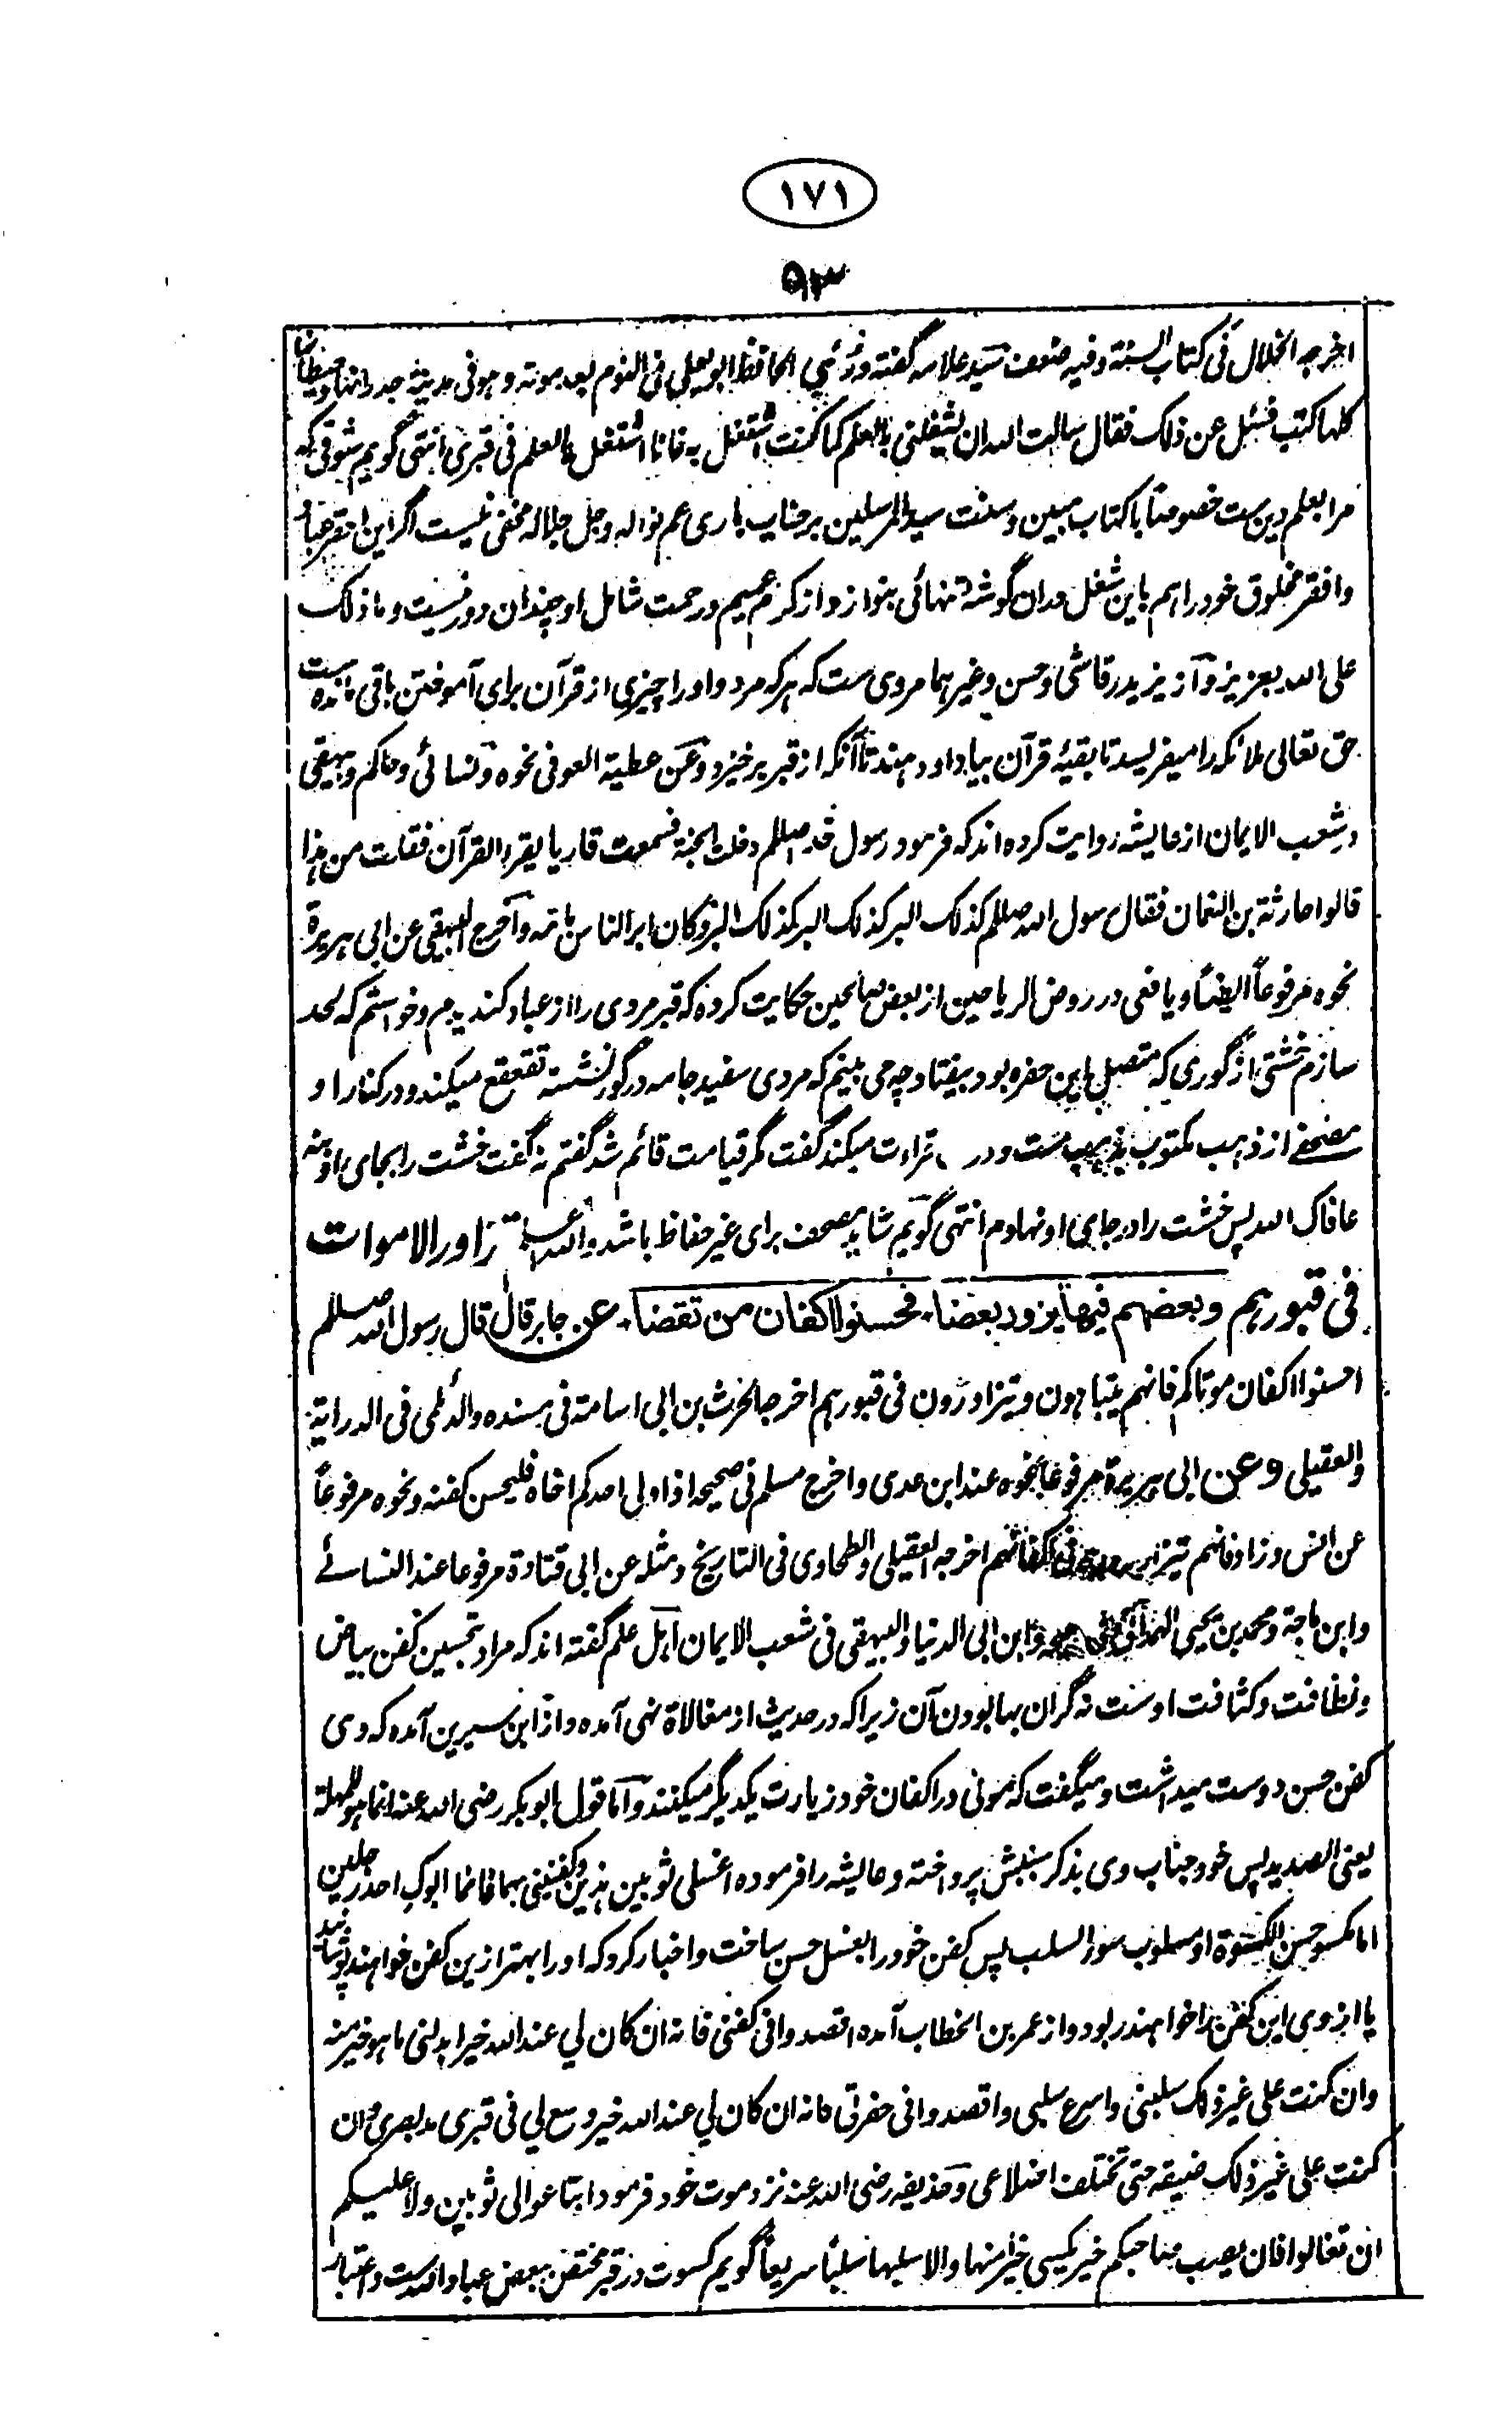 ١٧١
٩٣
اخرجه الخلال فی کتاب السنة وفیه ضعف سید علامه گفته ورُئی الحافظ ابو یعلی فی النوم بعد موته وهو فی مدینة جدرانها وحیطانها
کلها کتب فسئل عن ذلک فقال سالت الله ان یشغلنی بالعلم کما کنت اشتغل به فانا اشتغل بالعلم فی قبری انتهی گویم شوقی که
مرا بعلم دین ست خصوصاً با کتاب مبین وسنت سید المرسلین بر جناب باری عم نواله وجل جلاله مخفی نیست اگر این احقر عباد
وافقر مخلوق خود را هم باین شغل دران گوشهٔ تنهائی بنوازد از کرم عمیم ورحمت شامل او چندان دور نیست وما ذلک
علی الله بعزیز وآز یزید رقاشی وحسن وغیرهما مروی ست که هر که مرد واو را چیزی از قرآن برای آموختن باقی مانده است
حق تعالی ملائکه را میفریسد تا بقیهٔ قرآن بیاد او دهند تا آنکه از قبر برخیزد وعن عطیة العوفی نحوه ونسائی وحاکم وبیهقی
در شعب الایمان از عایشه روایت کرده اند که فرمود رسول خدا صلعم دخلت الجنة فسمعت قاریا یقرء القرآن فقلت من هذا
قالوا حارثة بن النعمان فقال رسول الله صلعم کذلک البر کذلک البر کذلک البر وکان ابر الناس بامه وآخرج البیهقی عن ابی هریرة
نحوه مرفوعاً ایضاً ویافعی در روض الریاحین از بعض صالحین حکایت کرده که قبر مردی را از عباد کندیدم وخواستم که لحد
سازم خشتی از گوری که متصل این حفره بود بیفتاد چه می بینم که مردی سفید جامه در گور نشسته تقعقع میکند ودر کنار او
مصحفے از ذهب مکتوب بذهب ست ودر قراءت میکند گفت مگر قیامت قائم شد گفتم نه گفت خشت را بجای او بنه
عافاک الله پس خشت را در جای او نهادم انتهی گویم شاید مصحف برای غیر حفاظ باشد والله اعلم تزاور الاموات
فی قبورهم وبعضهم فیها یزور بعضا فحسنوا الاکفان من تقضا عن جابر قال قال رسول الله صلعم
احسنوا اکفان موتاکم فانهم یتباهون ویتزاورون فی قبورهم اخرجه الحرث بن ابی اسامة فی مسنده والدئلمی فی الدرایة
والعقیلی وعن ابی هریرة مرفوعاً نحوه عند ابن عدی واخرج مسلم فی صحیحه اذا ولی احدکم اخاه فلیحسن کفنه ونحوه مرفوعاً
عن انس وزاد فانهم یتزاورون فی اکفانهم اخرجه العقیلی والطحاوی فی التاریخ ومثله عن ابی قتادة مرفوعا عند النسائے
وابن ماجة ومحمد بن یحیی الهمدانی فی صحیحه وابن ابی الدنیا والبیهقی فی شعب الایمان اهل علم گفته اند که مراد بتحسین کفن بیاض
ونظافت وکثافت اوست نه گران بها بودن آن زیرا که در حدیث از مغالاة نهی آمده واز ابن سیرین آمده که وی
کفن حسن دوست میداشت ومیگفت که موتی در اکفان خود زیارت یکدیگر میکنند واما قول ابوبکر رضی الله عنه انما هو للمهلة
یعنی الصدید پس خود جناب وی بذکر سببش پرداخته وعایشه را فرموده اغسلی ثوبین هذین وکفنینی بهما فانما ابوک احد رجلین
اما مکسو حسن الکسوة او مسلوب سوء السلب پس کفن خود را بغسل حسن ساخت واخبار کرد که او را بهتر ازین کفن خواهند پوشانید
یا از وی این کفن را خواهند ربود واز عمر بن الخطاب آمده اقصدوا فی کفنی فانه ان کان لی عند الله خیر ابدلنی ما هو خیر منه
وان کنت علی غیر ذلک سلبنی واسرع سلبی واقصدوا فی حفرتی فانه ان کان لی عند الله خیر وسع لی فی قبری مد بصری وان
کنت علی غیر ذلک ضیقه حتی تختلف اضلاعی وحذیفه رضی الله عنه نزد موت خود فرمود ابتاعوا لی ثوبین ولا علیکم
ان تغالوا فان یصب صاحبکم خیر یکسی خیرا منها والا سلبها سلبا سریعاً گویم کسوت در قبر مختص ببعض عباد الله ست واعتبار